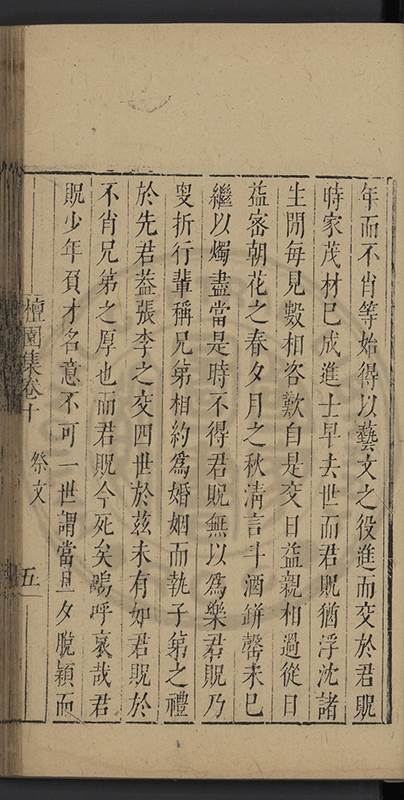 年而不肖等始得以藝文之役進而交於君貺
時家茂材巳成進士早去世而君貺猶浮沈諸
生閒每見數相咨歎自是交日益親相過從日
益密朝花之春夕月之秋淸言斗酒缾罄未巳
繼以燭盡當是時不得君貺無以爲樂君貺乃
叟折行輩稱兄弟相約爲婚姻而執子弟之禮
於先君葢張李之交四世於兹未有如君貺於
不肖兄弟之厚也而君貺今死矣嗚呼哀哉君
貺少年負才名意不可一世謂當旦夕脫穎而
檀園集卷十 祭文 五